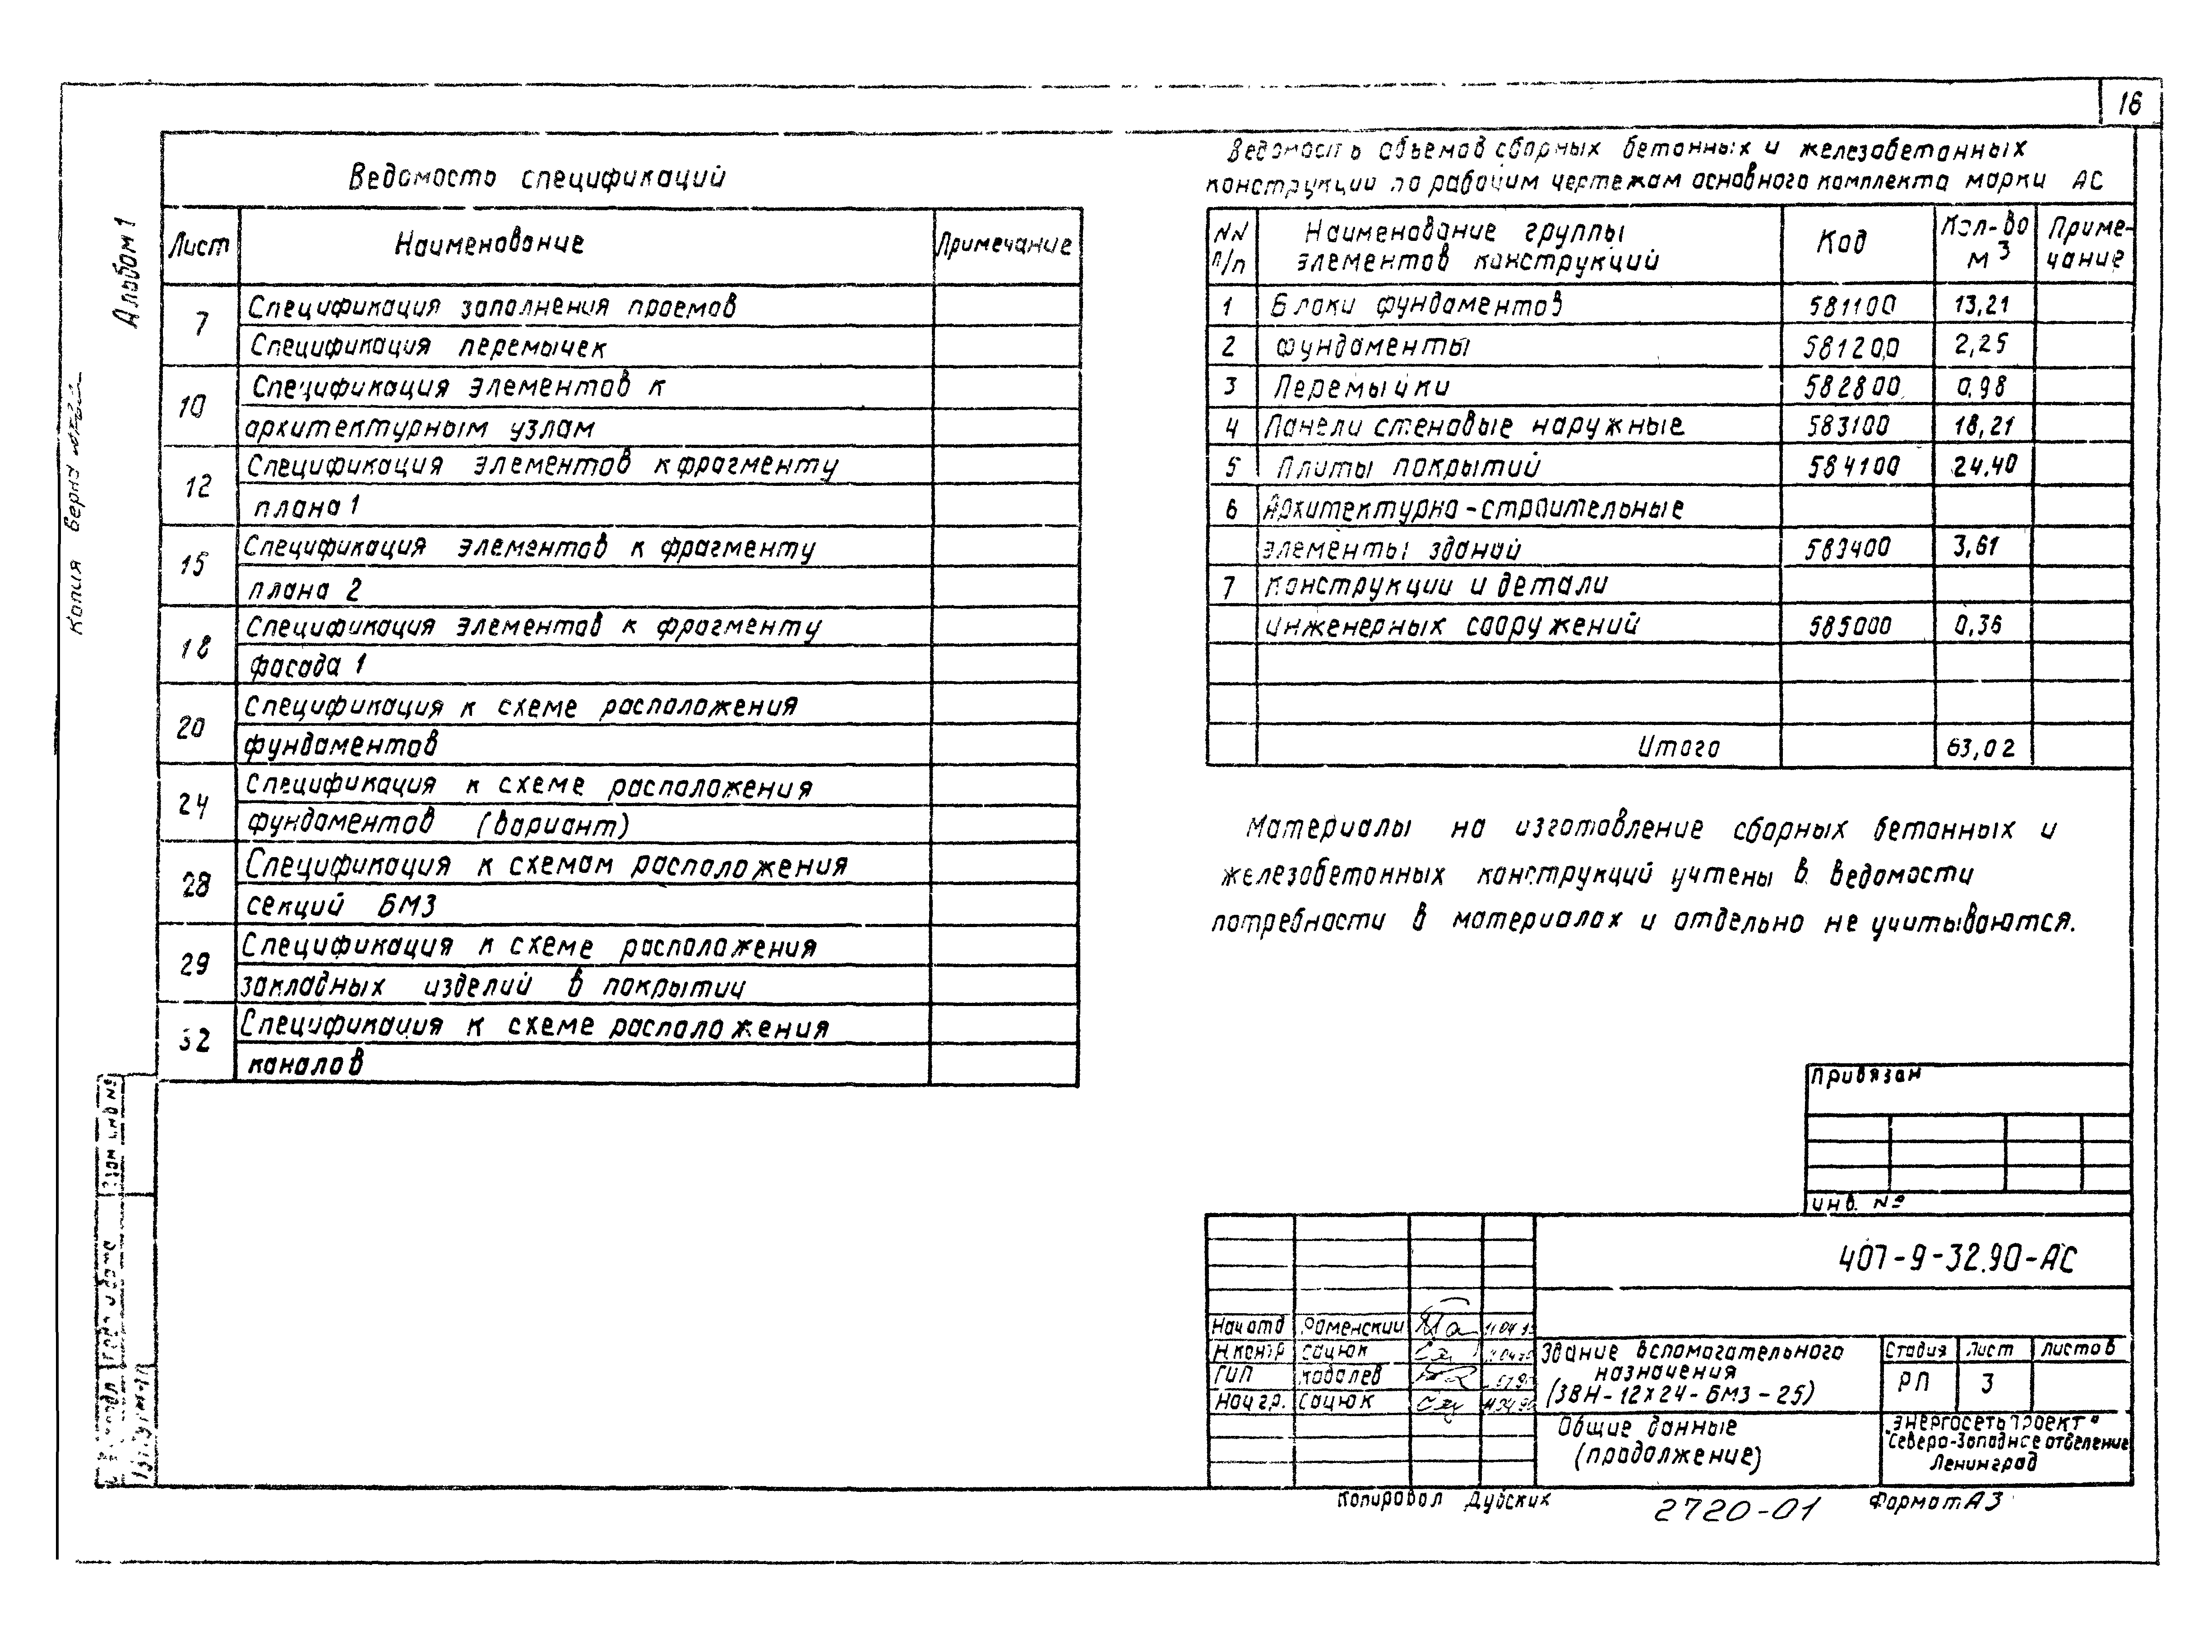 16
Альбом 1
Копия верна
Ведомость спецификаций
Лист Наименование Примечание
7 Спецификация заполнения проемов
Спецификация перемычек
10 Спецификация элементов к
архитектурным узлам
12 Спецификация элементов к фрагменту
плана 1
15 Спецификация элементов к фрагменту
плана 2
18 Спецификация элементов к фрагменту
фасада 1
20 Спецификация к схеме расположения
фундаментов
24 Спецификация к схеме расположения
фундаментов (вариант)
28 Спецификация к схемам расположения
секций БМЗ
29 Спецификация к схеме расположения
закладных изделий в покрытии
32 Спецификация к схеме расположения
каналов
Ведомость объемов сборных бетонных и железобетонных
конструкции по рабочим чертежам основного комплекта марки АС
NN Наименование группы Код Кол-во Приме-
п/п элементов конструкций м3 чание
1 Блоки фундаментов 581100 13,21
2 Фундаменты 581200 2,25
3 Перемычки 582800 0,98
4 Панели стеновые наружные 583100 18,21
5 Плиты покрытий 584100 24,40
6 Архитектурно-строительные
элементы зданий 583400 3,61
7 Конструкции и детали
инженерных сооружений 585000 0,36
Итого 63,02
Материалы на изготовление сборных бетонных и
железобетонных конструкций учтены в ведомости
потребности в материалах и отдельно не учитываются.
Привязан
Инв. №
407-9-32.90-АС
Нач отд Раменский
Н.контр Сацюк
ГИП Ковалев
Нач гр. Сацюк
Здание вспомогательного
назначения
(ЗВН-12х24-БМЗ-25)
Стадия Лист Листов
РП 3
Общие данные
(продолжение)
"Энергосетьпроект"
Северо-Западное отделение
Ленинград
Взам инв №
Копировал Дубских 2720-01 Формат А3